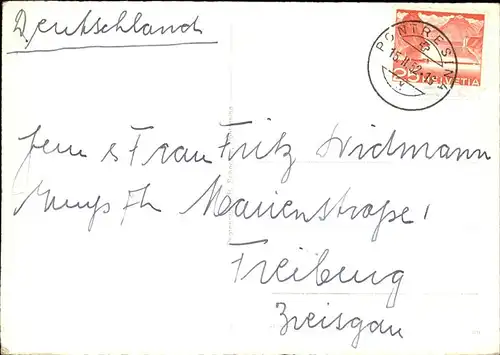 Deutschland
PONTRESINA
15.II.52.-15
25 HELVETIA
Frau Fritz Widmann
Marienstraße 1
Freiburg
Breisgau